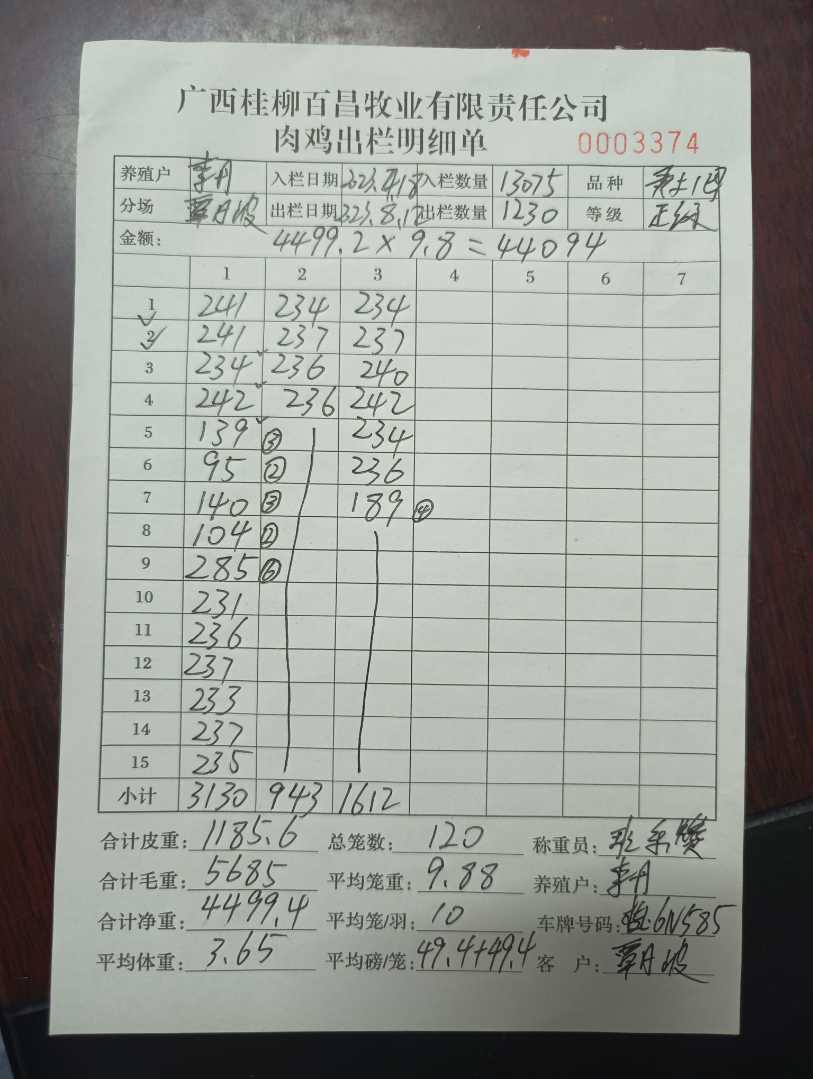 广西桂柳百昌牧业有限责任公司
肉鸡出栏明细单 0003374
养殖户 入栏日期 入栏数量 13075 品种
分场 出栏日期 出栏数量 1230 等级 正
金额: 4499.2 × 9.8 = 44094
1 2 3 4 5 6 7
1 241 234 234
2 241 237 237
3 234 236 240
4 242 236 242
5 139 ③ 234
6 95 ② 236
7 140 ③ 189 ④
8 104 ②
9 285 ⑥
10 231
11 236
12 237
13 233
14 237
15 235
小计 3130 943 1612
合计皮重: 1185.6 总笼数: 120 称重员:
合计毛重: 5685 平均笼重: 9.88 养殖户:
合计净重: 4499.4 平均笼/羽: 10 车牌号码: 6N585
平均体重: 3.65 平均磅/笼: 49.4+49.4 客 户: